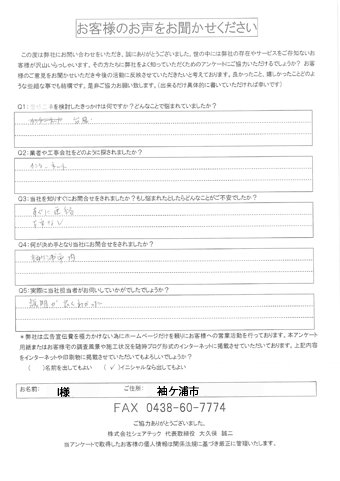 お客様のお声をお聞かせください
この度は弊社にお問い合わせをいただき、誠にありがとうございました。世の中には弊社の存在やサービスをご存知ないお
客様が沢山いらっしゃいます。その方たちに弊社をよく知っていただくためのアンケートにご協力いただけるでしょうか？ お
客様のご意見をお聞かせいただき今後の活動に反映させていただきたいと考えております。良かったこと、嬉しかったことどのよ
うな些細な事でも結構です。是非ご協力お願い致します。(出来るだけ具体的に書いていただければ幸いです)
Q1: を検討したきっかけは何ですか？どんなことで悩まれていましたか？
Q2:業者や工事会社をどのように探されましたか？
インターネット
Q3:当社を知りすぐにお問合せをされましたか？もし悩まれたとしたらどんなことがご不安でしたか？
すぐに連絡
Q4:何が決め手となり当社にお問合せをされましたか？
袖ケ浦市内
Q5:実際に当社担当者がお伺いしていかがでしたでしょうか？
説明が良くわかった
＊弊社は広告宣伝費を極力かけない為にホームページだけを頼りにお客様への営業活動を行っております。本アンケート
用紙またはお客様宅の調査風景や施工状況を随時ブログ形式のインターネットに掲載させていただいております。上記内容
をインターネットや印刷物に掲載させていただいてもよろしいでしょうか？
( )名前を出してもよい (✓)イニシャルなら出してもよい
お名前: I様 ご住所: 袖ケ浦市
FAX 0438-60-7774
ご協力ありがとうございました。
株式会社シェアテック 代表取締役 大久保 誠二
当アンケートで取得したお客様の個人情報は関係法規に基づき厳正に管理いたします。